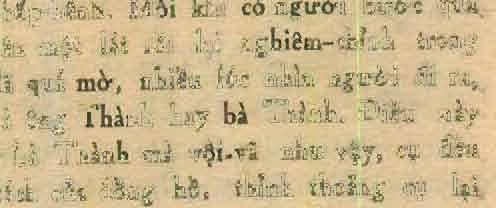 bệnh. Mỗi khi có người bước qua
một lát rồi lại nghiêm-chỉnh trong
quá mờ, nhiều lúc nhìn người đi ra,
ông Thành hay bà Thành. Điều này
Thành mà vội-vã như vậy, cụ đều
cái đồng hồ, thỉnh thoảng cụ lại